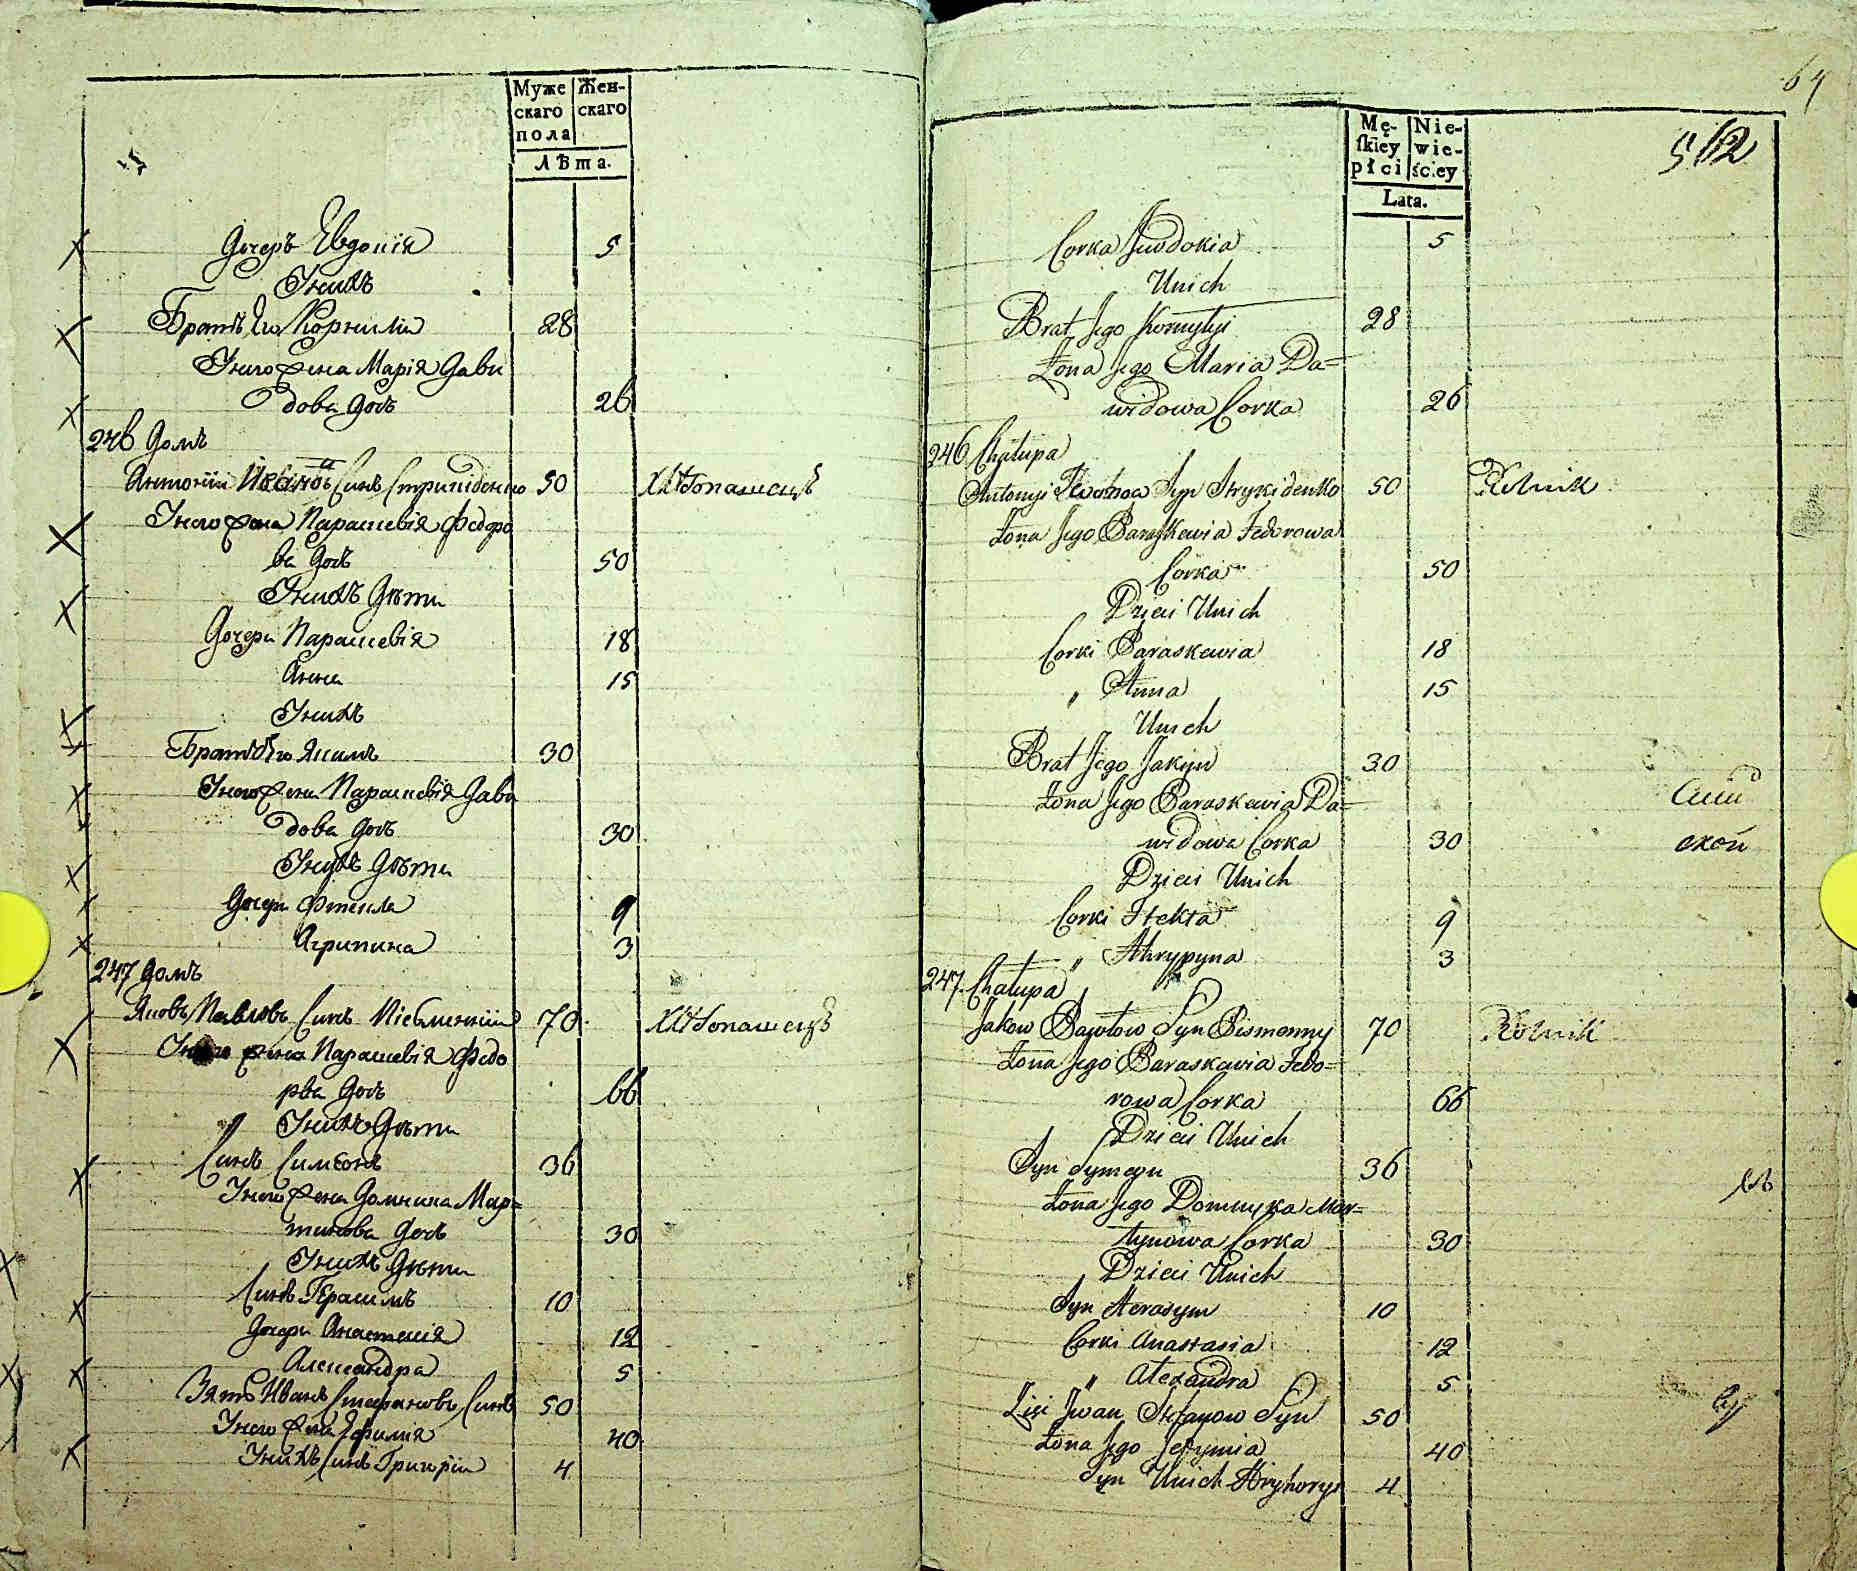 Муже
скаго
пола
Жен-
скаго
Лѣта.
Дочеръ Евдокія 5
Унихъ
Братъ Его Корнилій 28
Унего жена Марія Дави
дова Дочь 26
246 Домъ
Антоній Ивановъ Синъ Стрижиденко 50 Хлѣбопашецъ
Унего жена Параскевія Федоро
ва Дочь 50
Унихъ Дѣти
Дочери Параскевія 18
Анна 15
Унихъ
Братъ Его Якимъ 30
Унего жена Параскевія Дави
дова Дочь 30
Унихъ Дѣти
Дочери Фтекла 9
Агрипина 3
247 Домъ
Яковъ Павловъ Синъ Писменний 70 Хлѣбопашецъ
Унего жена Параскевія Федо
рва Дочь 66
Унихъ Дѣти
Синъ Симеонъ 36
Унего жена Домникиа Мар=
тинова Дочь 30
Унихъ Дѣти
Синъ Герасимъ 10
Дочери Анастасія 12
Александра 5
Зять Иванъ Стефановъ Синъ 50
Унего жена Ефимія 40
Унихъ Синъ Григорій 4
64
512
Mę-
ſkiey
płci
Nie-
wie-
ściey
Lata.
Corka Jewdokia 5
Unich
Brat Jego Kornyłyi 28
Żona Jego Maria Da=
widowa Corka 26
246 Chałupa
Antonyi Iwanow Syn Strykidenko 50 Rolnik
Żona Jego Paraskewia Fedorowa
Corka 50
Dzieci Unich
Corki Paraskewia 18
„ Anna 15
Unich
Brat Jego Jakym 30
Żona Jego Paraskewia Da=
widowa Corka 30
ской
Dzieci Unich
Corki Ftekla 9
„ Ahrypyna 3
247 Chałupa
Jakow Pawłow Syn Pismenny 70 Rolnik
Żona Jego Paraskewia Fedo=
rowa Corka 66
Dzieci Unich
Syn Symeon 36
Żona Jego Domnyka Mar=
tynowa Corka 30
Dzieci Unich
Syn Herasym 10
Corki Anastasia 12
„ Alexandra 5
Zięć Iwan Stefanow Syn 50
Żona Jego Jefymia 40
Syn Unich Hryhory 4